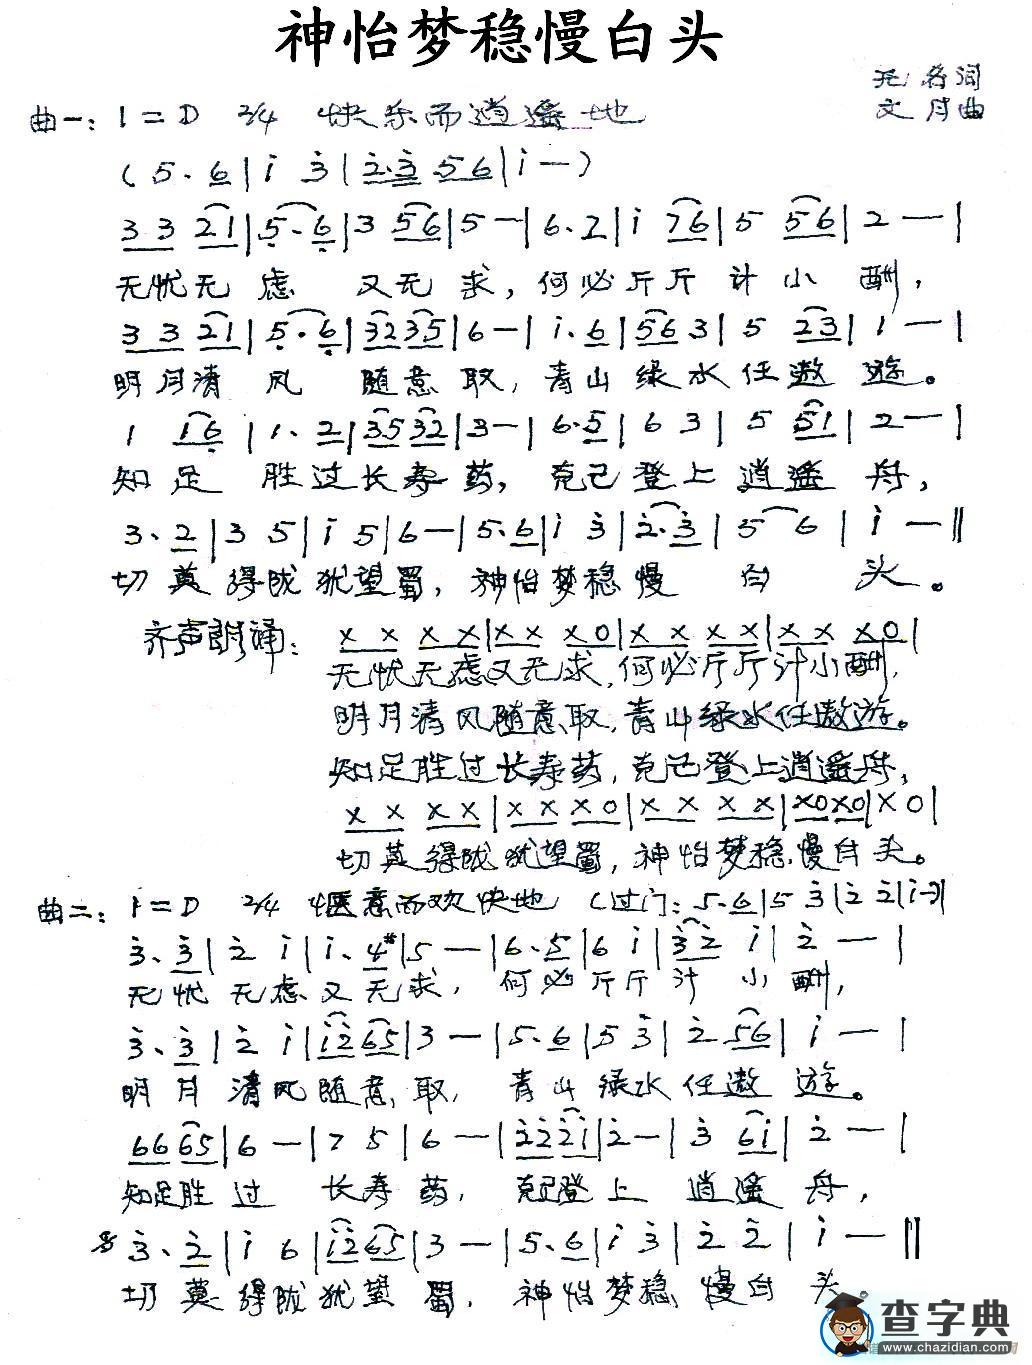 神怡梦稳慢白头
无名词
曲一: 1=D 2/4 快乐而逍遥地
文月曲
(5. 6|i 3̇|2̇.3̇ 56|i —)
3 3 21|5. 6|3 56|5 —|6. 2|i 76|5 56|2 —|
无忧无虑 又无求,何必斤斤计小酬,
3 3 21|5. 6|32 35|6 —|i. 6|56 3|5 23|1 —|
明月清风 随意取,青山绿水任遨遊。
1 16|1. 2|35 32|3 —|6. 5|6 3|5 51|2 —|
知足 胜过长寿药,克己登上逍遥舟,
3. 2|3 5|i 5|6 —|5. 6|i 3̇|2̇. 3̇|5 6|i —‖
切莫得陇犹望蜀,神怡梦稳慢白头。
齐声朗诵: X X X X|X X X 0|X X X X|X X X 0|
无忧无虑又无求,何必斤斤计小酬,
明月清风随意取,青山绿水任遨遊。
知足胜过长寿药,克己登上逍遥舟,
X X X X|X X X 0|X X X X|X0 X0|X 0|
切莫得陇犹望蜀,神怡梦稳慢白头。
曲二: 1=D 2/4 惬意而欢快地 (过门: 5. 6|5 3̇|2̇ 2̇|i —)|
3̇. 3̇|2̇ i|i. 4#|5 —|6. 5|6 i|3̇2̇ i|2̇ —|
无忧无虑又无求,何必斤斤计小酬,
3̇. 3̇|2̇ i|i2̇ 65|3 —|5. 6|5 3̇|2̇ 56|i —|
明月清风随意取,青山绿水任遨遊。
66 65|6 —|7 5|6 —|2̇2̇ 2̇i|2̇ —|3̇ 6i|2̇ —|
知足胜过长寿药,克己登上逍遥舟,
3̇. 2̇|i 6|i2̇ 65|3 —|5. 6|i 3̇|2̇ 2̇|i —‖
切莫得陇犹望蜀,神怡梦稳慢白头。
查字典
www.chazidian.com